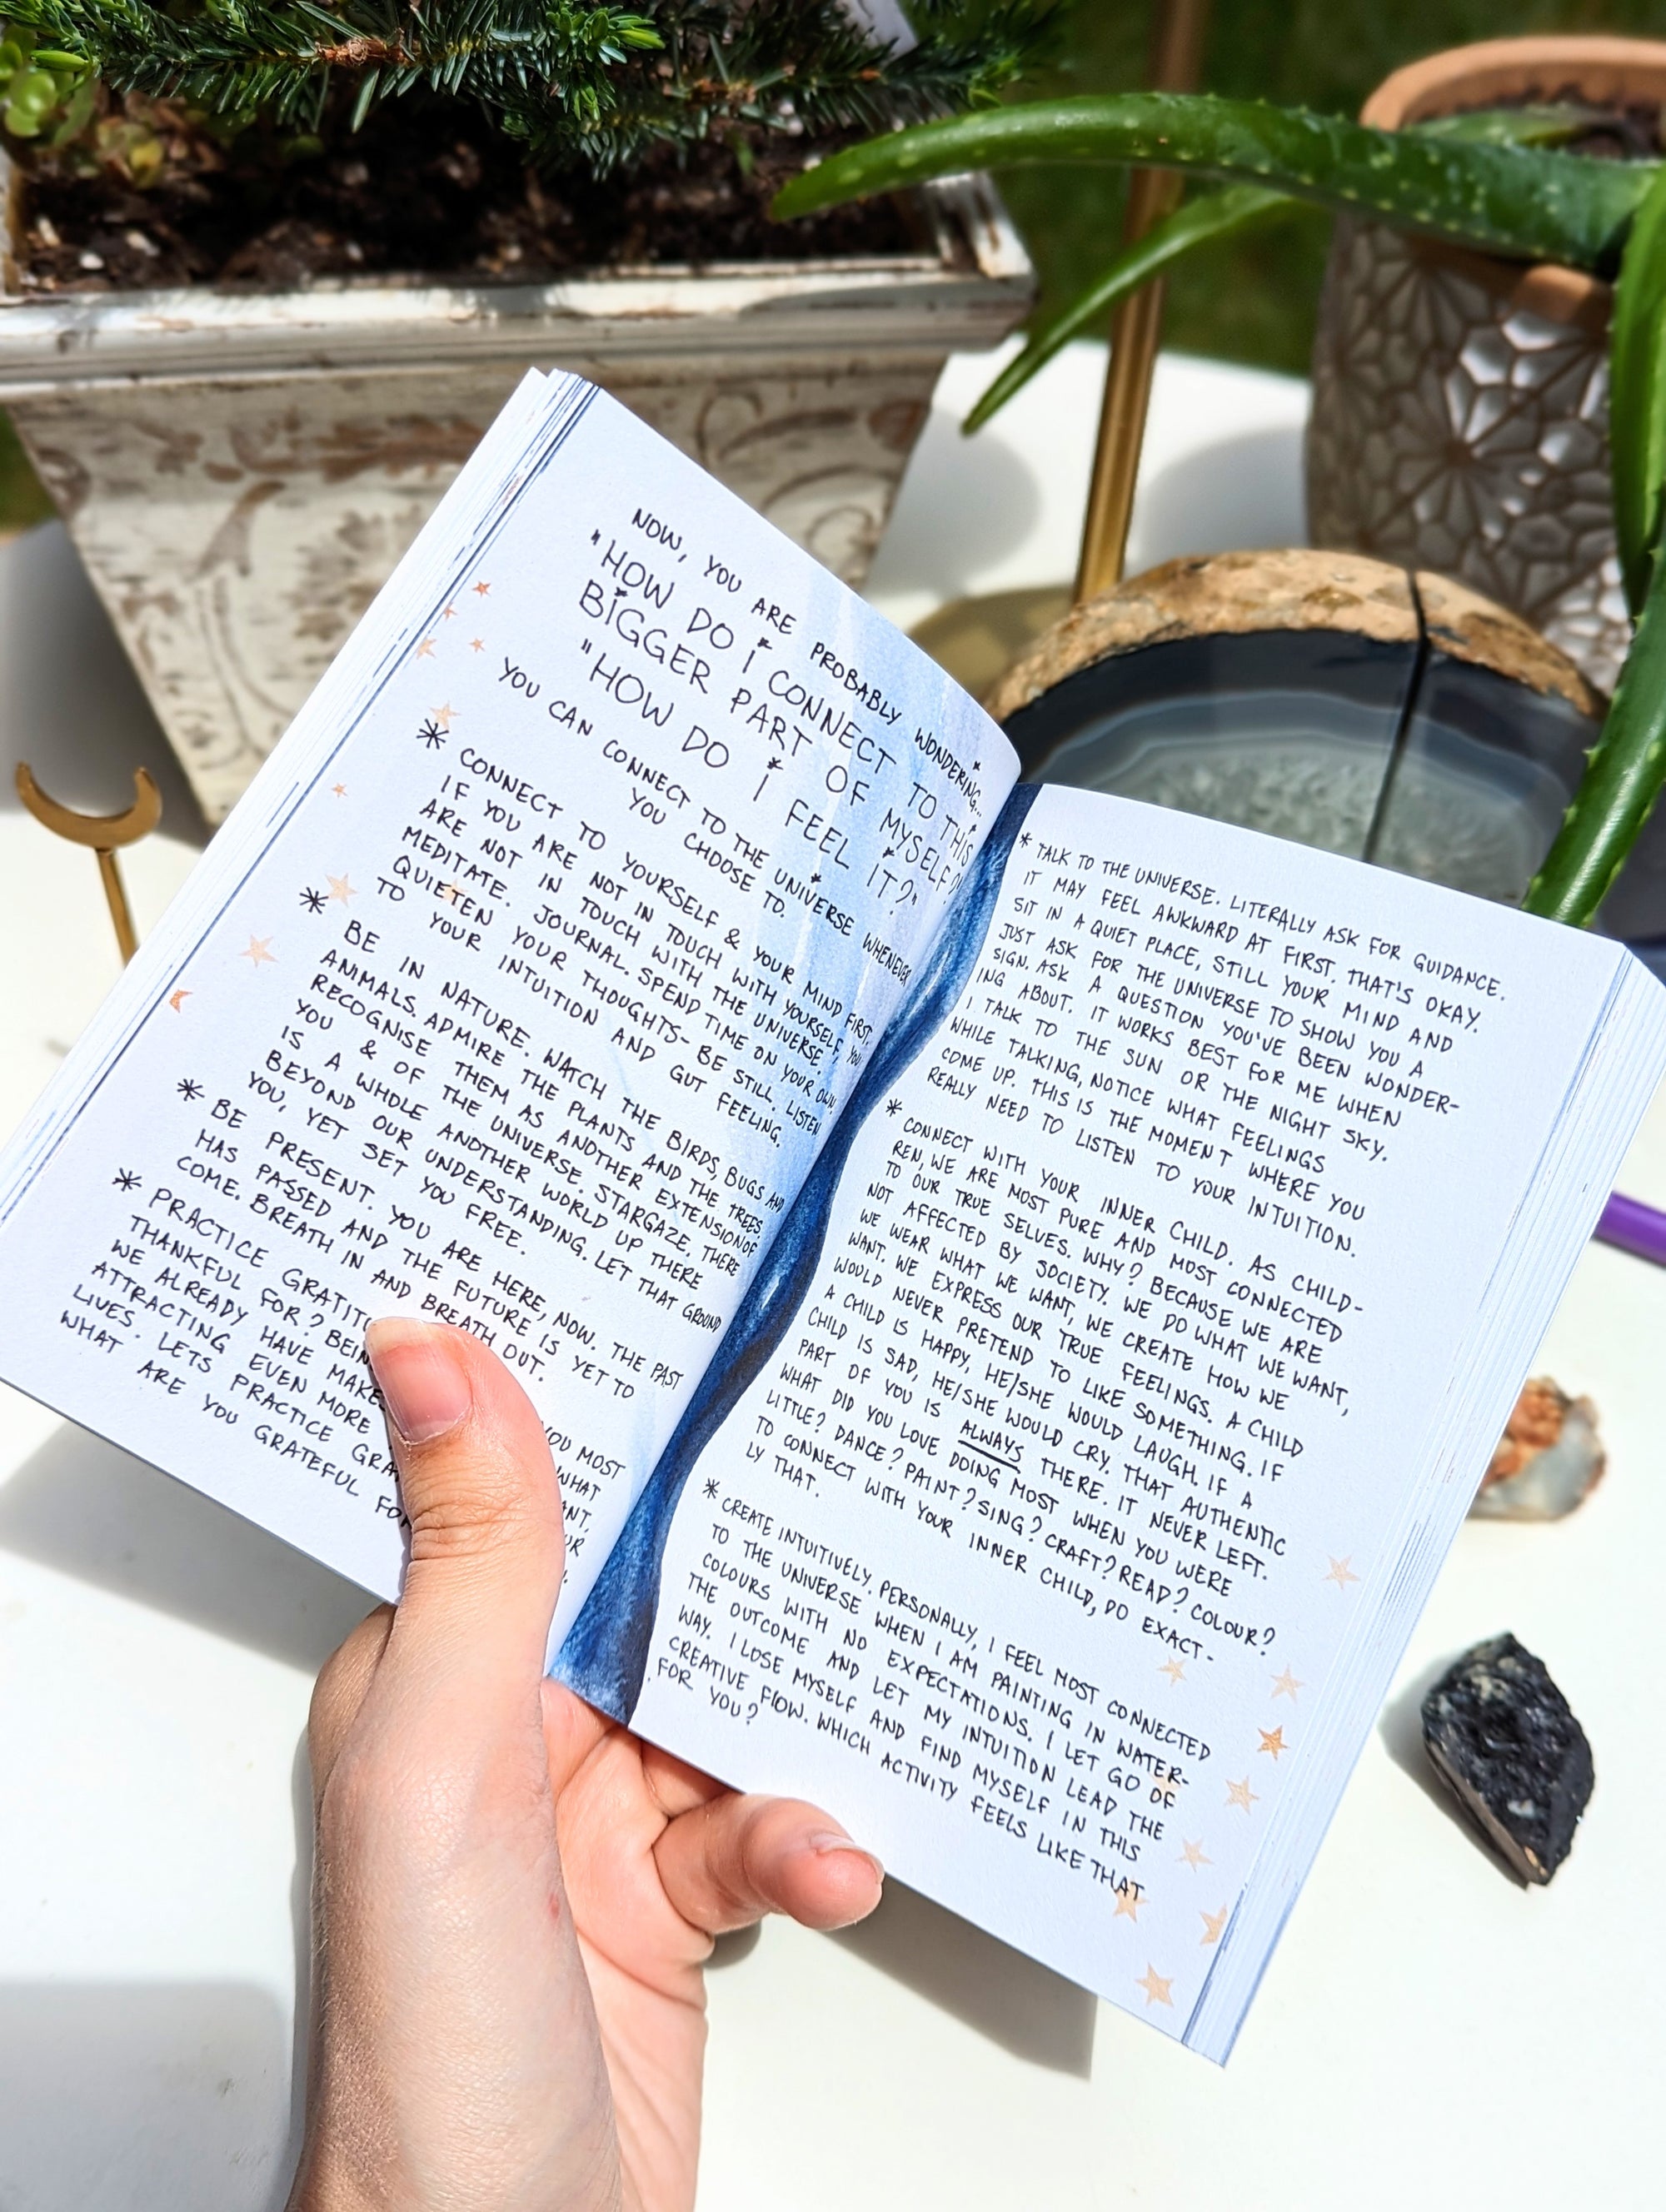 NOW, YOU ARE PROBABLY WONDERING...
"HOW DO I CONNECT TO THIS
BIGGER PART OF MYSELF?"
"HOW DO I FEEL IT?"
YOU CAN CONNECT TO THE UNIVERSE WHENEVER
YOU CHOOSE TO.
* CONNECT TO YOURSELF & YOUR MIND FIRST.
IF YOU ARE NOT IN TOUCH WITH YOURSELF, YOU
ARE NOT IN TOUCH WITH THE UNIVERSE.
MEDITATE. JOURNAL. SPEND TIME ON YOUR OWN.
QUIETEN YOUR THOUGHTS- BE STILL. LISTEN
TO YOUR INTUITION AND GUT FEELING.
* BE IN NATURE. WATCH THE BIRDS, BUGS AND
ANIMALS. ADMIRE THE PLANTS AND THE TREES.
RECOGNISE THEM AS ANOTHER EXTENSION OF
YOU & OF THE UNIVERSE. STARGAZE. THERE
IS A WHOLE ANOTHER WORLD UP THERE
BEYOND OUR UNDERSTANDING. LET THAT GROUND
YOU, YET SET YOU FREE.
* BE PRESENT. YOU ARE HERE, NOW. THE PAST
HAS PASSED AND THE FUTURE IS YET TO
COME. BREATH IN AND BREATH OUT.
* PRACTICE GRATITU YOU MOST
THANKFUL FOR? BEIN WHAT
WE ALREADY HAVE MAKE
ATTRACTING EVEN MORE
LIVES. LETS PRACTICE GRA
WHAT ARE YOU GRATEFUL FOR
* TALK TO THE UNIVERSE. LITERALLY ASK FOR GUIDANCE.
IT MAY FEEL AWKWARD AT FIRST. THAT'S OKAY.
SIT IN A QUIET PLACE, STILL YOUR MIND AND
JUST ASK FOR THE UNIVERSE TO SHOW YOU A
SIGN. ASK A QUESTION YOU'VE BEEN WONDER-
ING ABOUT. IT WORKS BEST FOR ME WHEN
I TALK TO THE SUN OR THE NIGHT SKY.
WHILE TALKING, NOTICE WHAT FEELINGS
COME UP. THIS IS THE MOMENT WHERE YOU
REALLY NEED TO LISTEN TO YOUR INTUITION.
* CONNECT WITH YOUR INNER CHILD. AS CHILD-
REN, WE ARE MOST PURE AND MOST CONNECTED
TO OUR TRUE SELVES. WHY? BECAUSE WE ARE
NOT AFFECTED BY SOCIETY. WE DO WHAT WE WANT,
WE WEAR WHAT WE WANT, WE CREATE HOW WE
WANT. WE EXPRESS OUR TRUE FEELINGS. A CHILD
WOULD NEVER PRETEND TO LIKE SOMETHING. IF
A CHILD IS HAPPY, HE/SHE WOULD LAUGH. IF A
CHILD IS SAD, HE/SHE WOULD CRY. THAT AUTHENTIC
PART OF YOU IS ALWAYS THERE. IT NEVER LEFT.
WHAT DID YOU LOVE DOING MOST WHEN YOU WERE
LITTLE? DANCE? PAINT? SING? CRAFT? READ? COLOUR?
TO CONNECT WITH YOUR INNER CHILD, DO EXACT-
LY THAT.
* CREATE INTUITIVELY. PERSONALLY, I FEEL MOST CONNECTED
TO THE UNIVERSE WHEN I AM PAINTING IN WATER-
COLOURS WITH NO EXPECTATIONS. I LET GO OF
THE OUTCOME AND LET MY INTUITION LEAD THE
WAY. I LOSE MYSELF AND FIND MYSELF IN THIS
CREATIVE FLOW. WHICH ACTIVITY FEELS LIKE THAT
FOR YOU?